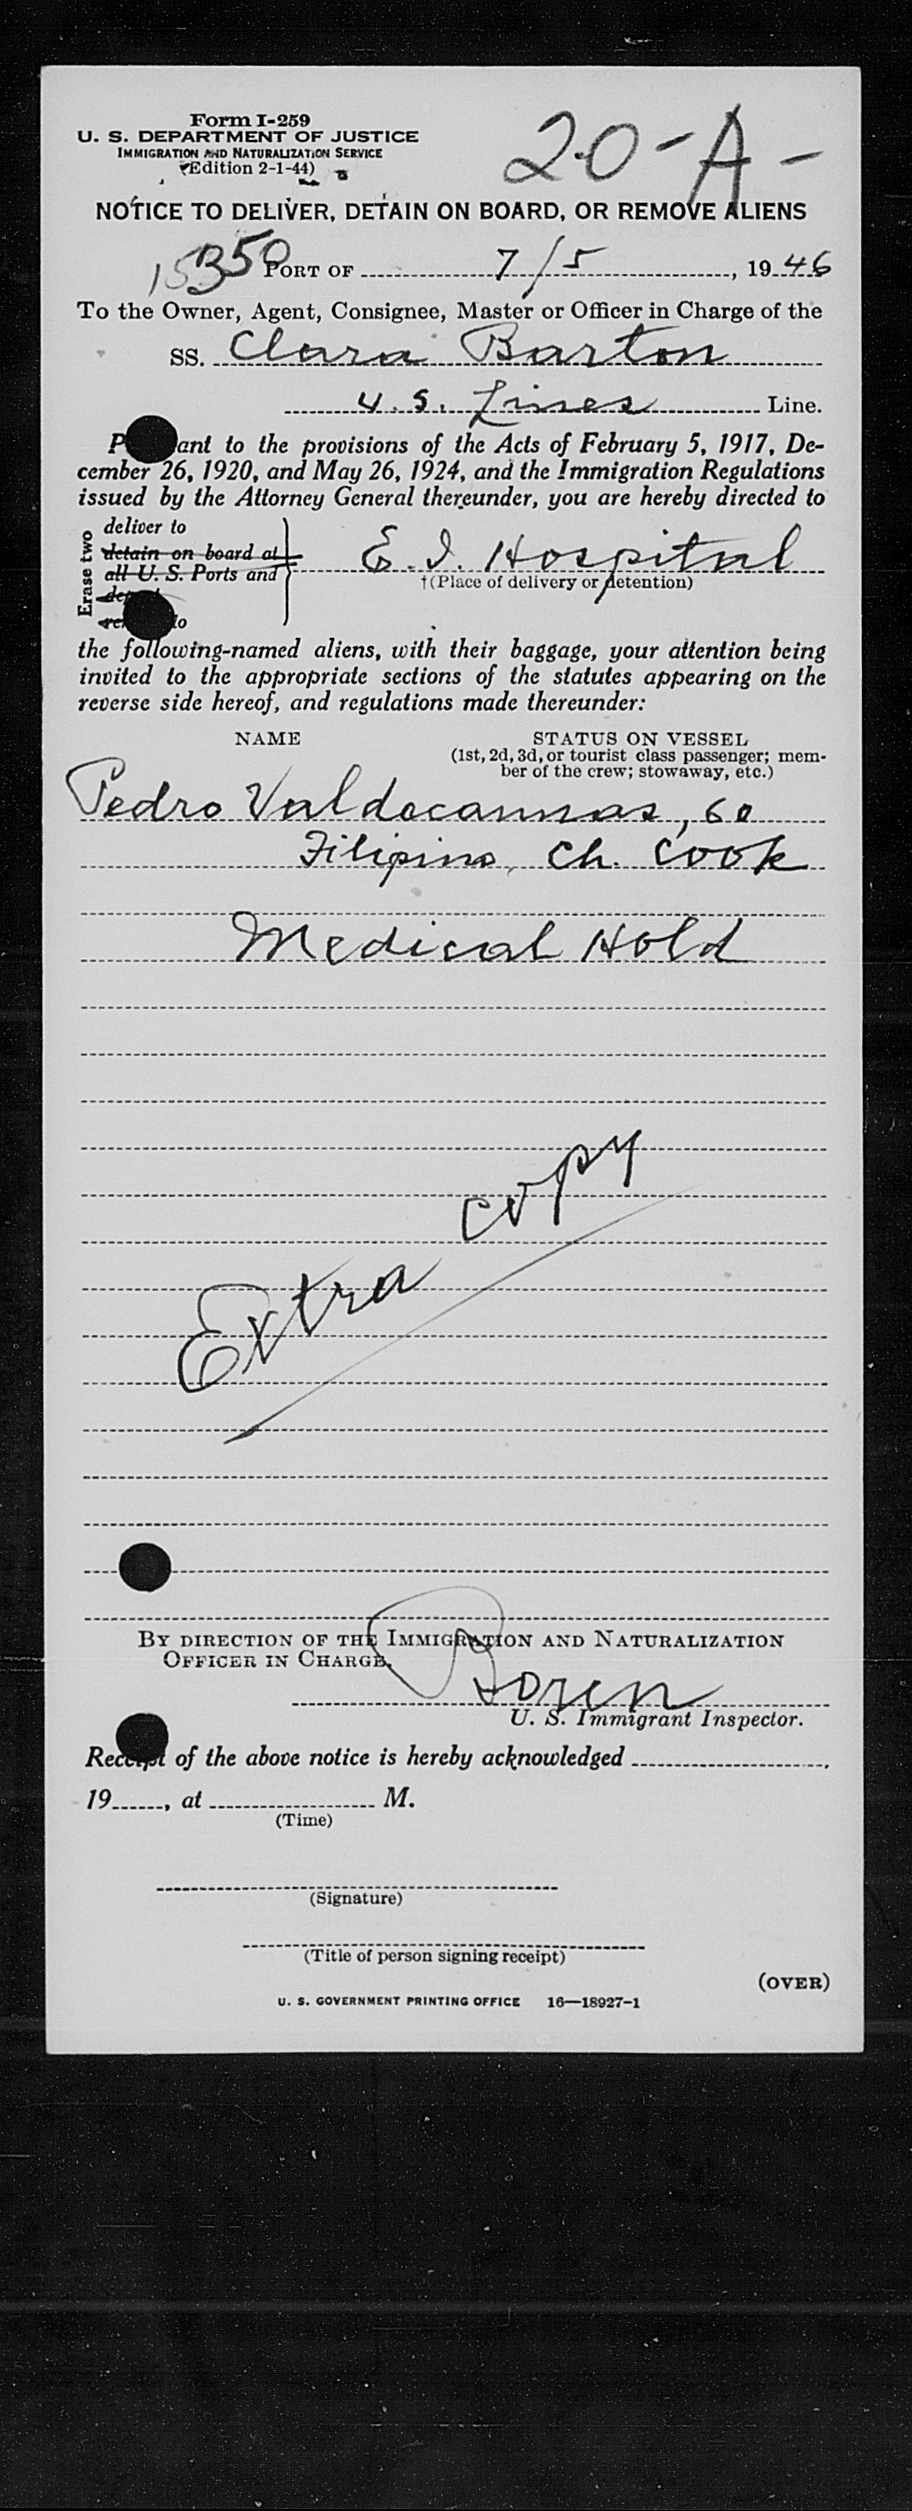 Form I-259
U. S. DEPARTMENT OF JUSTICE
IMMIGRATION AND NATURALIZATION SERVICE
(Edition 2-1-44)
20-A-
NOTICE TO DELIVER, DETAIN ON BOARD, OR REMOVE ALIENS
15350
PORT OF 7/5, 1946
To the Owner, Agent, Consignee, Master or Officer in Charge of the
SS. Clara Barton
U.S. Lines Line.
P ant to the provisions of the Acts of February 5, 1917, De-
cember 26, 1920, and May 26, 1924, and the Immigration Regulations
issued by the Attorney General thereunder, you are hereby directed to
Erase two
deliver to
detain on board at
all U. S. Ports and
E. I. Hospital
†(Place of delivery or detention)
the following-named aliens, with their baggage, your attention being
invited to the appropriate sections of the statutes appearing on the
reverse side hereof, and regulations made thereunder:
NAME STATUS ON VESSEL
(1st, 2d, 3d, or tourist class passenger; mem-
ber of the crew; stowaway, etc.)
Pedro Valdecannas, 60
Filipino, Ch. Cook
Medical Hold
Extra copy
BY DIRECTION OF THE IMMIGRATION AND NATURALIZATION
OFFICER IN CHARGE.
Boren
U. S. Immigrant Inspector.
Receipt of the above notice is hereby acknowledged ,
19 , at M.
(Time)
(Signature)
(Title of person signing receipt)
(OVER)
U. S. GOVERNMENT PRINTING OFFICE 16—18927-1